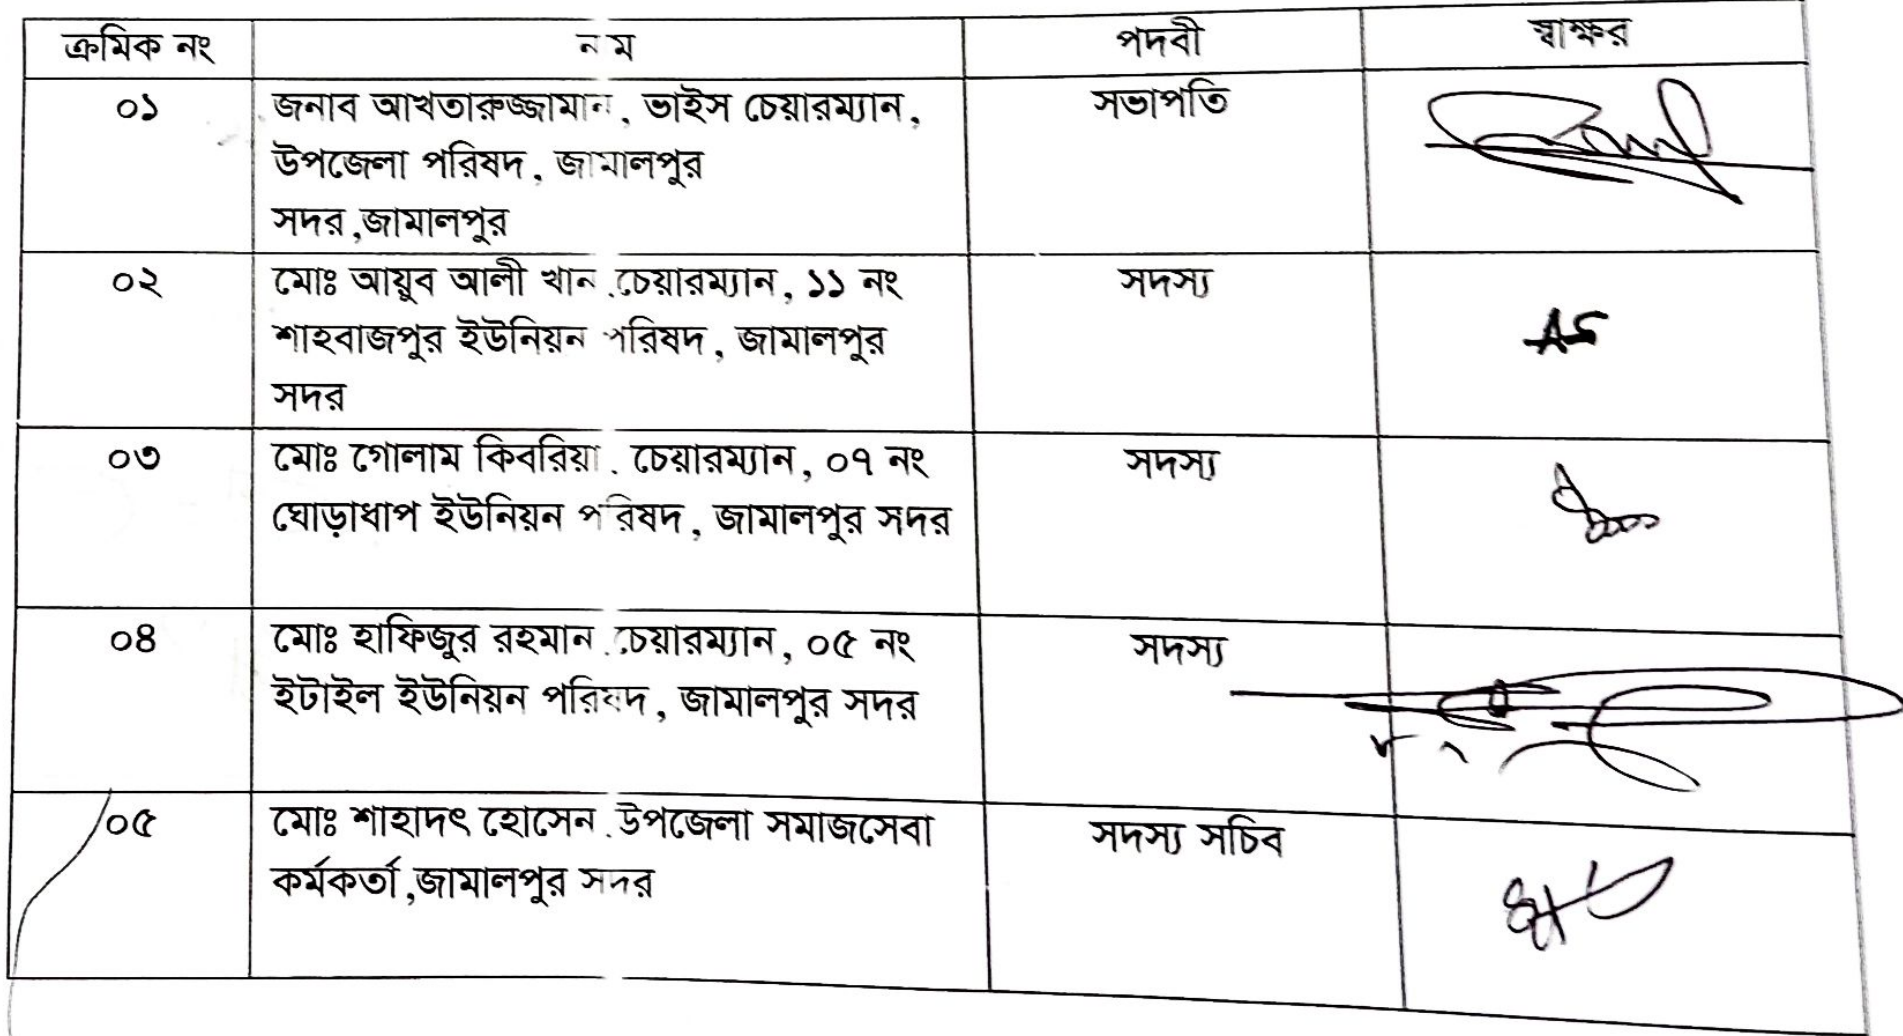 ক্রমিক নং নাম পদবী স্বাক্ষর
০১ জনাব আখতারুজ্জামান, ভাইস চেয়ারম্যান, সভাপতি
উপজেলা পরিষদ, জামালপুর
সদর,জামালপুর
০২ মোঃ আয়ুব আলী খান,চেয়ারম্যান, ১১ নং সদস্য
শাহবাজপুর ইউনিয়ন পরিষদ, জামালপুর
সদর
০৩ মোঃ গোলাম কিবরিয়া, চেয়ারম্যান, ০৭ নং সদস্য
ঘোড়াধাপ ইউনিয়ন পরিষদ, জামালপুর সদর
০৪ মোঃ হাফিজুর রহমান,চেয়ারম্যান, ০৫ নং সদস্য
ইটাইল ইউনিয়ন পরিষদ, জামালপুর সদর
০৫ মোঃ শাহাদৎ হোসেন,উপজেলা সমাজসেবা সদস্য সচিব
কর্মকর্তা,জামালপুর সদর